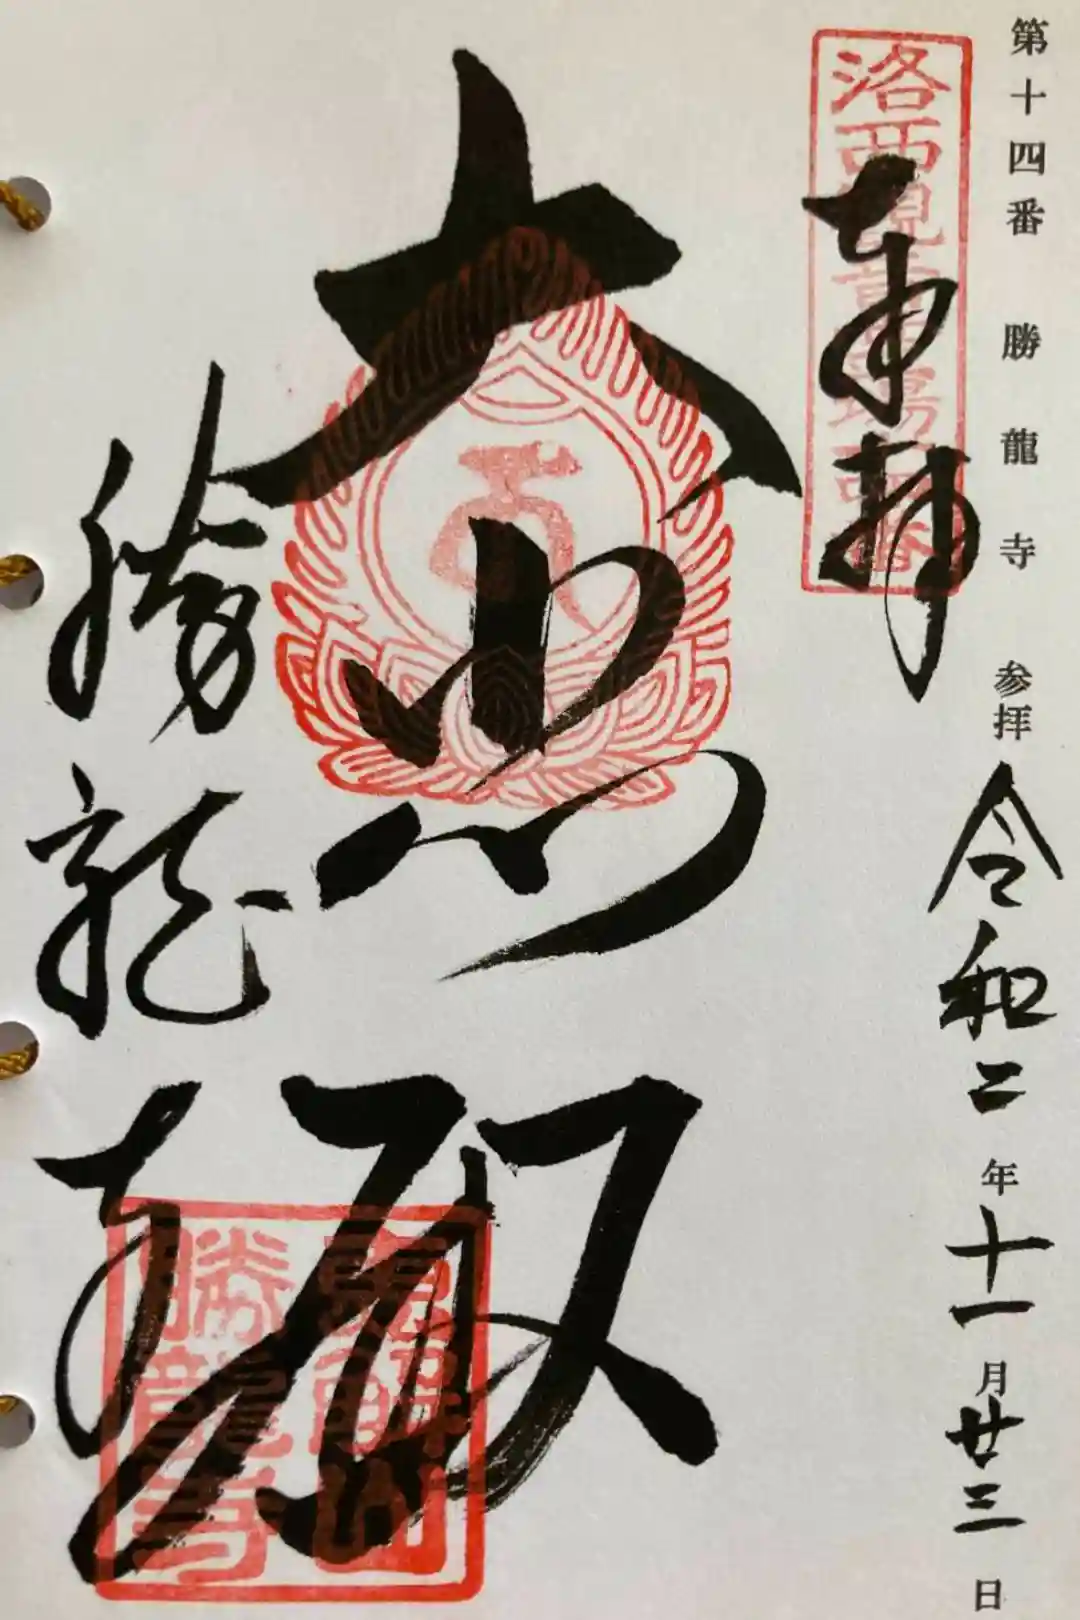 第十四番 勝龍寺 参拝 令和二年十一月廿三日
奉拝
洛西観音霊場十四番
大悲殿
勝龍寺
恵解山
勝龍寺